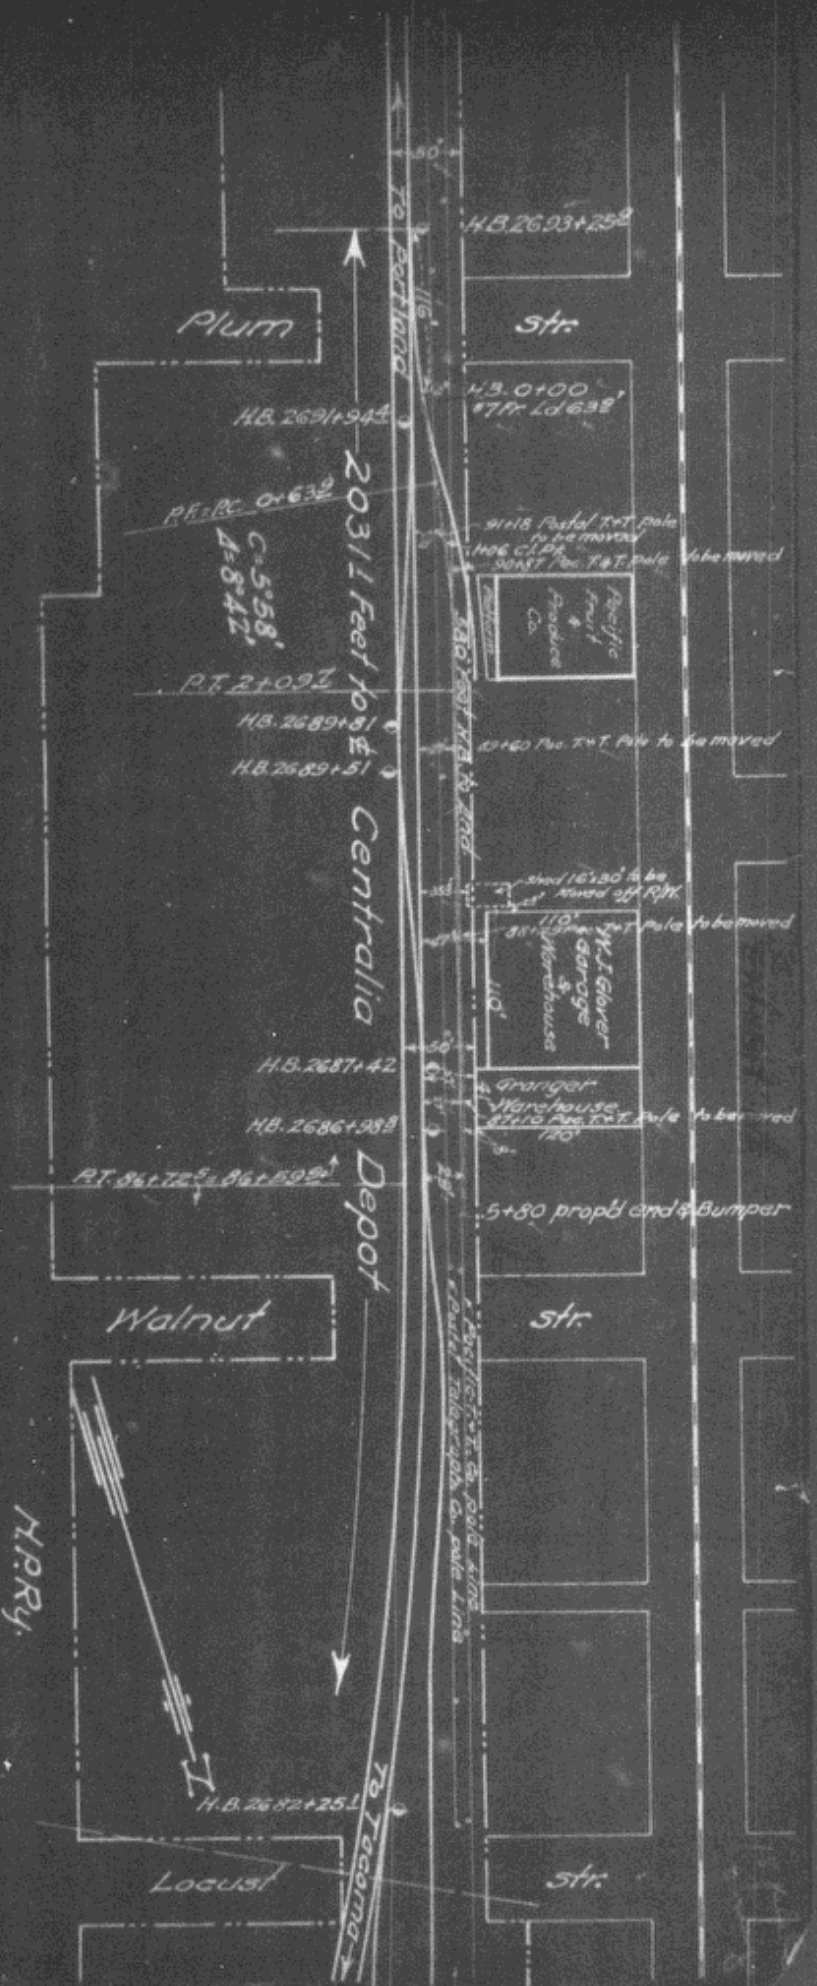 50'
To Portland
H.B. 2693+25⁸
116'
Plum Str.
H.B. 0+00
#7 Fr. Ld 63⁹'
H.B. 2691+94⁴
P.F.=P.C. 0+63⁹
C=5°58'
Δ=8°42'
91+18 Postal T.&T. Pole
to be moved
1+06 Cl. Pt.
90+87 Pac. T.&T. Pole to be moved
Pacific
Fruit
&
Produce
Co.
2031.1 Feet to ℄ Centralia Depot
P.T. 2+09⁷
580' East H.B. to End
H.B. 2689+81
89+60 Pac. T.&T. Pole to be moved
H.B. 2689+51
Shed 16'x30' to be
moved off R/W.
110'
88+29 Pac. T.&T. Pole to be moved
W.J. Glover
Garage
&
Warehouse
110'
50'
H.B. 2687+42
Granger
Warehouse
87+10 Pac. T.&T. Pole to be moved
120'
H.B. 2686+98⁸
P.T. 86+72⁵=86+59
29'
5+80 prop'd end & Bumper
Walnut Str.
Pacific T.&T. Co. pole Line
Postal Telegraph Co. pole Line
N.P.Ry.
H.B. 2682+25¹
To Tacoma
Locust Str.